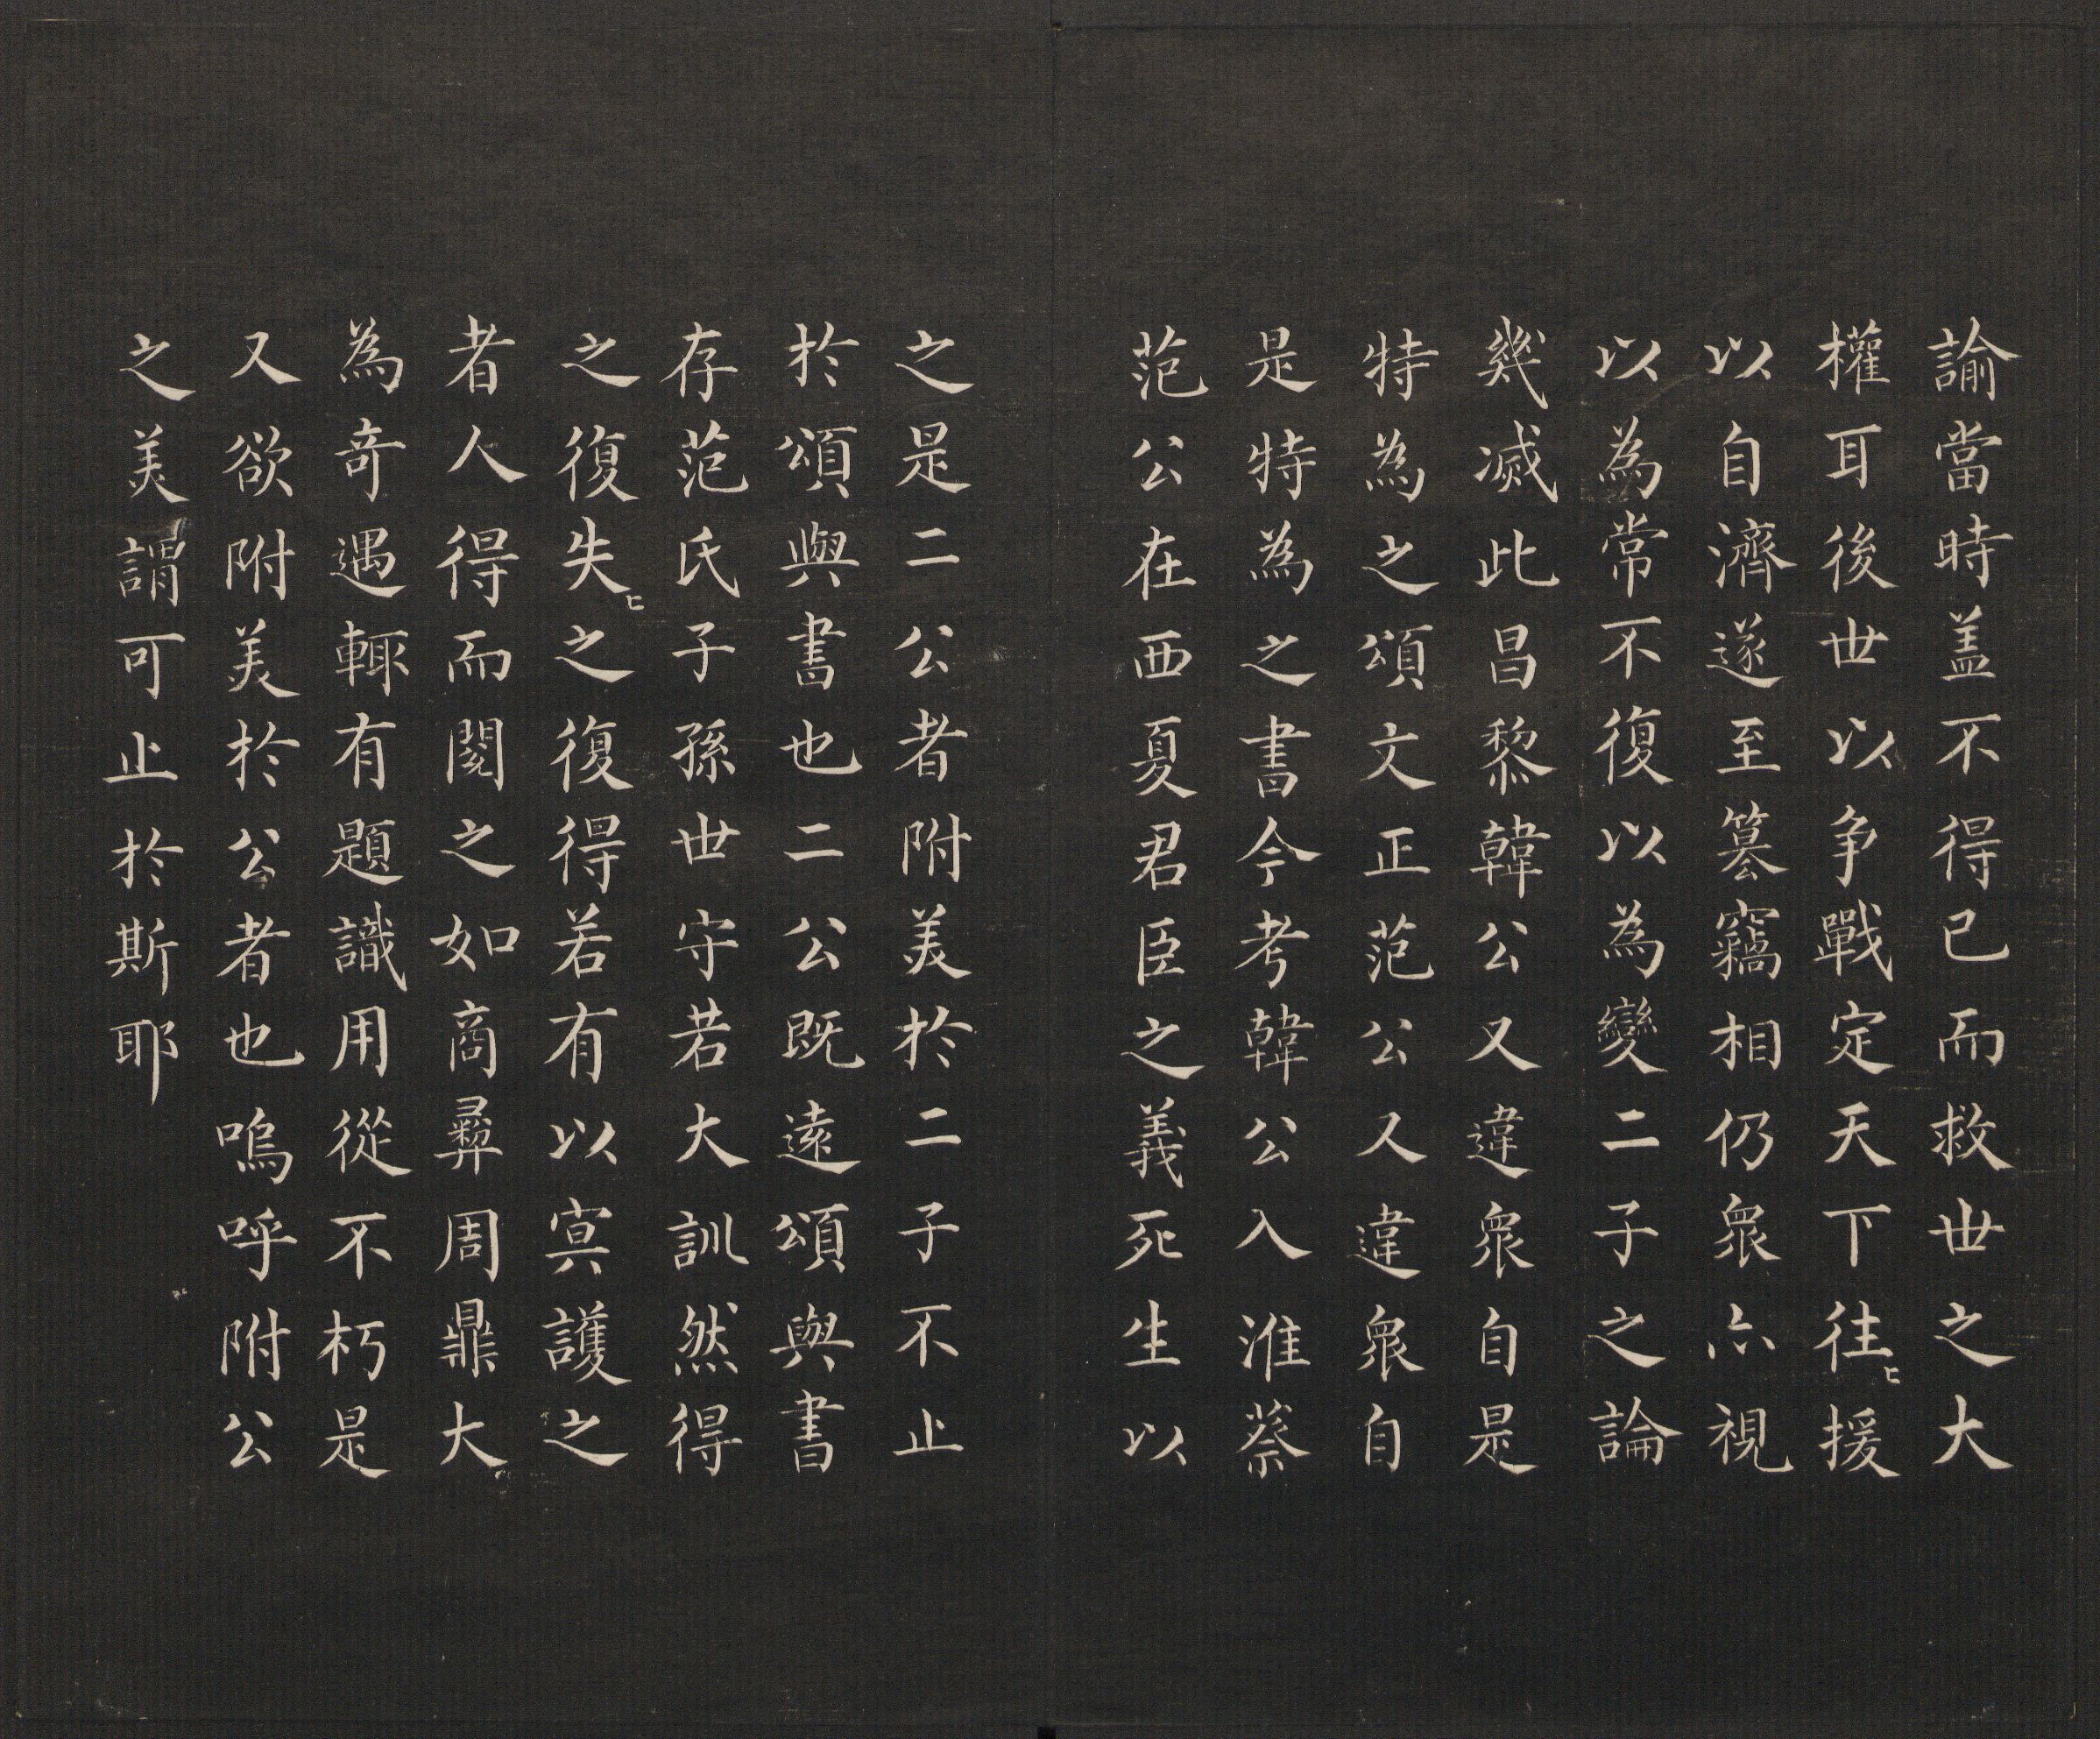 諭當時盖不得已而救世之大
權耳後世以爭戰定天下往〻援
以自濟遂至簒竊相仍衆亦視
以為常不復以為變二子之論
幾滅此昌黎韓公又違衆自是
特為之頌文正范公又違衆自
是特為之書今考韓公入淮蔡
范公在西夏君臣之義死生以
之是二公者附美於二子不止
於頌與書也二公既遠頌與書
存范氏子孫世守若大訓然得
之復失〻之復得若有以寘護之
者人得而閱之如商彛周鼎大
為奇遇輒有題識用從不朽是
又欲附美於公者也嗚呼附公
之美謂可止於斯耶